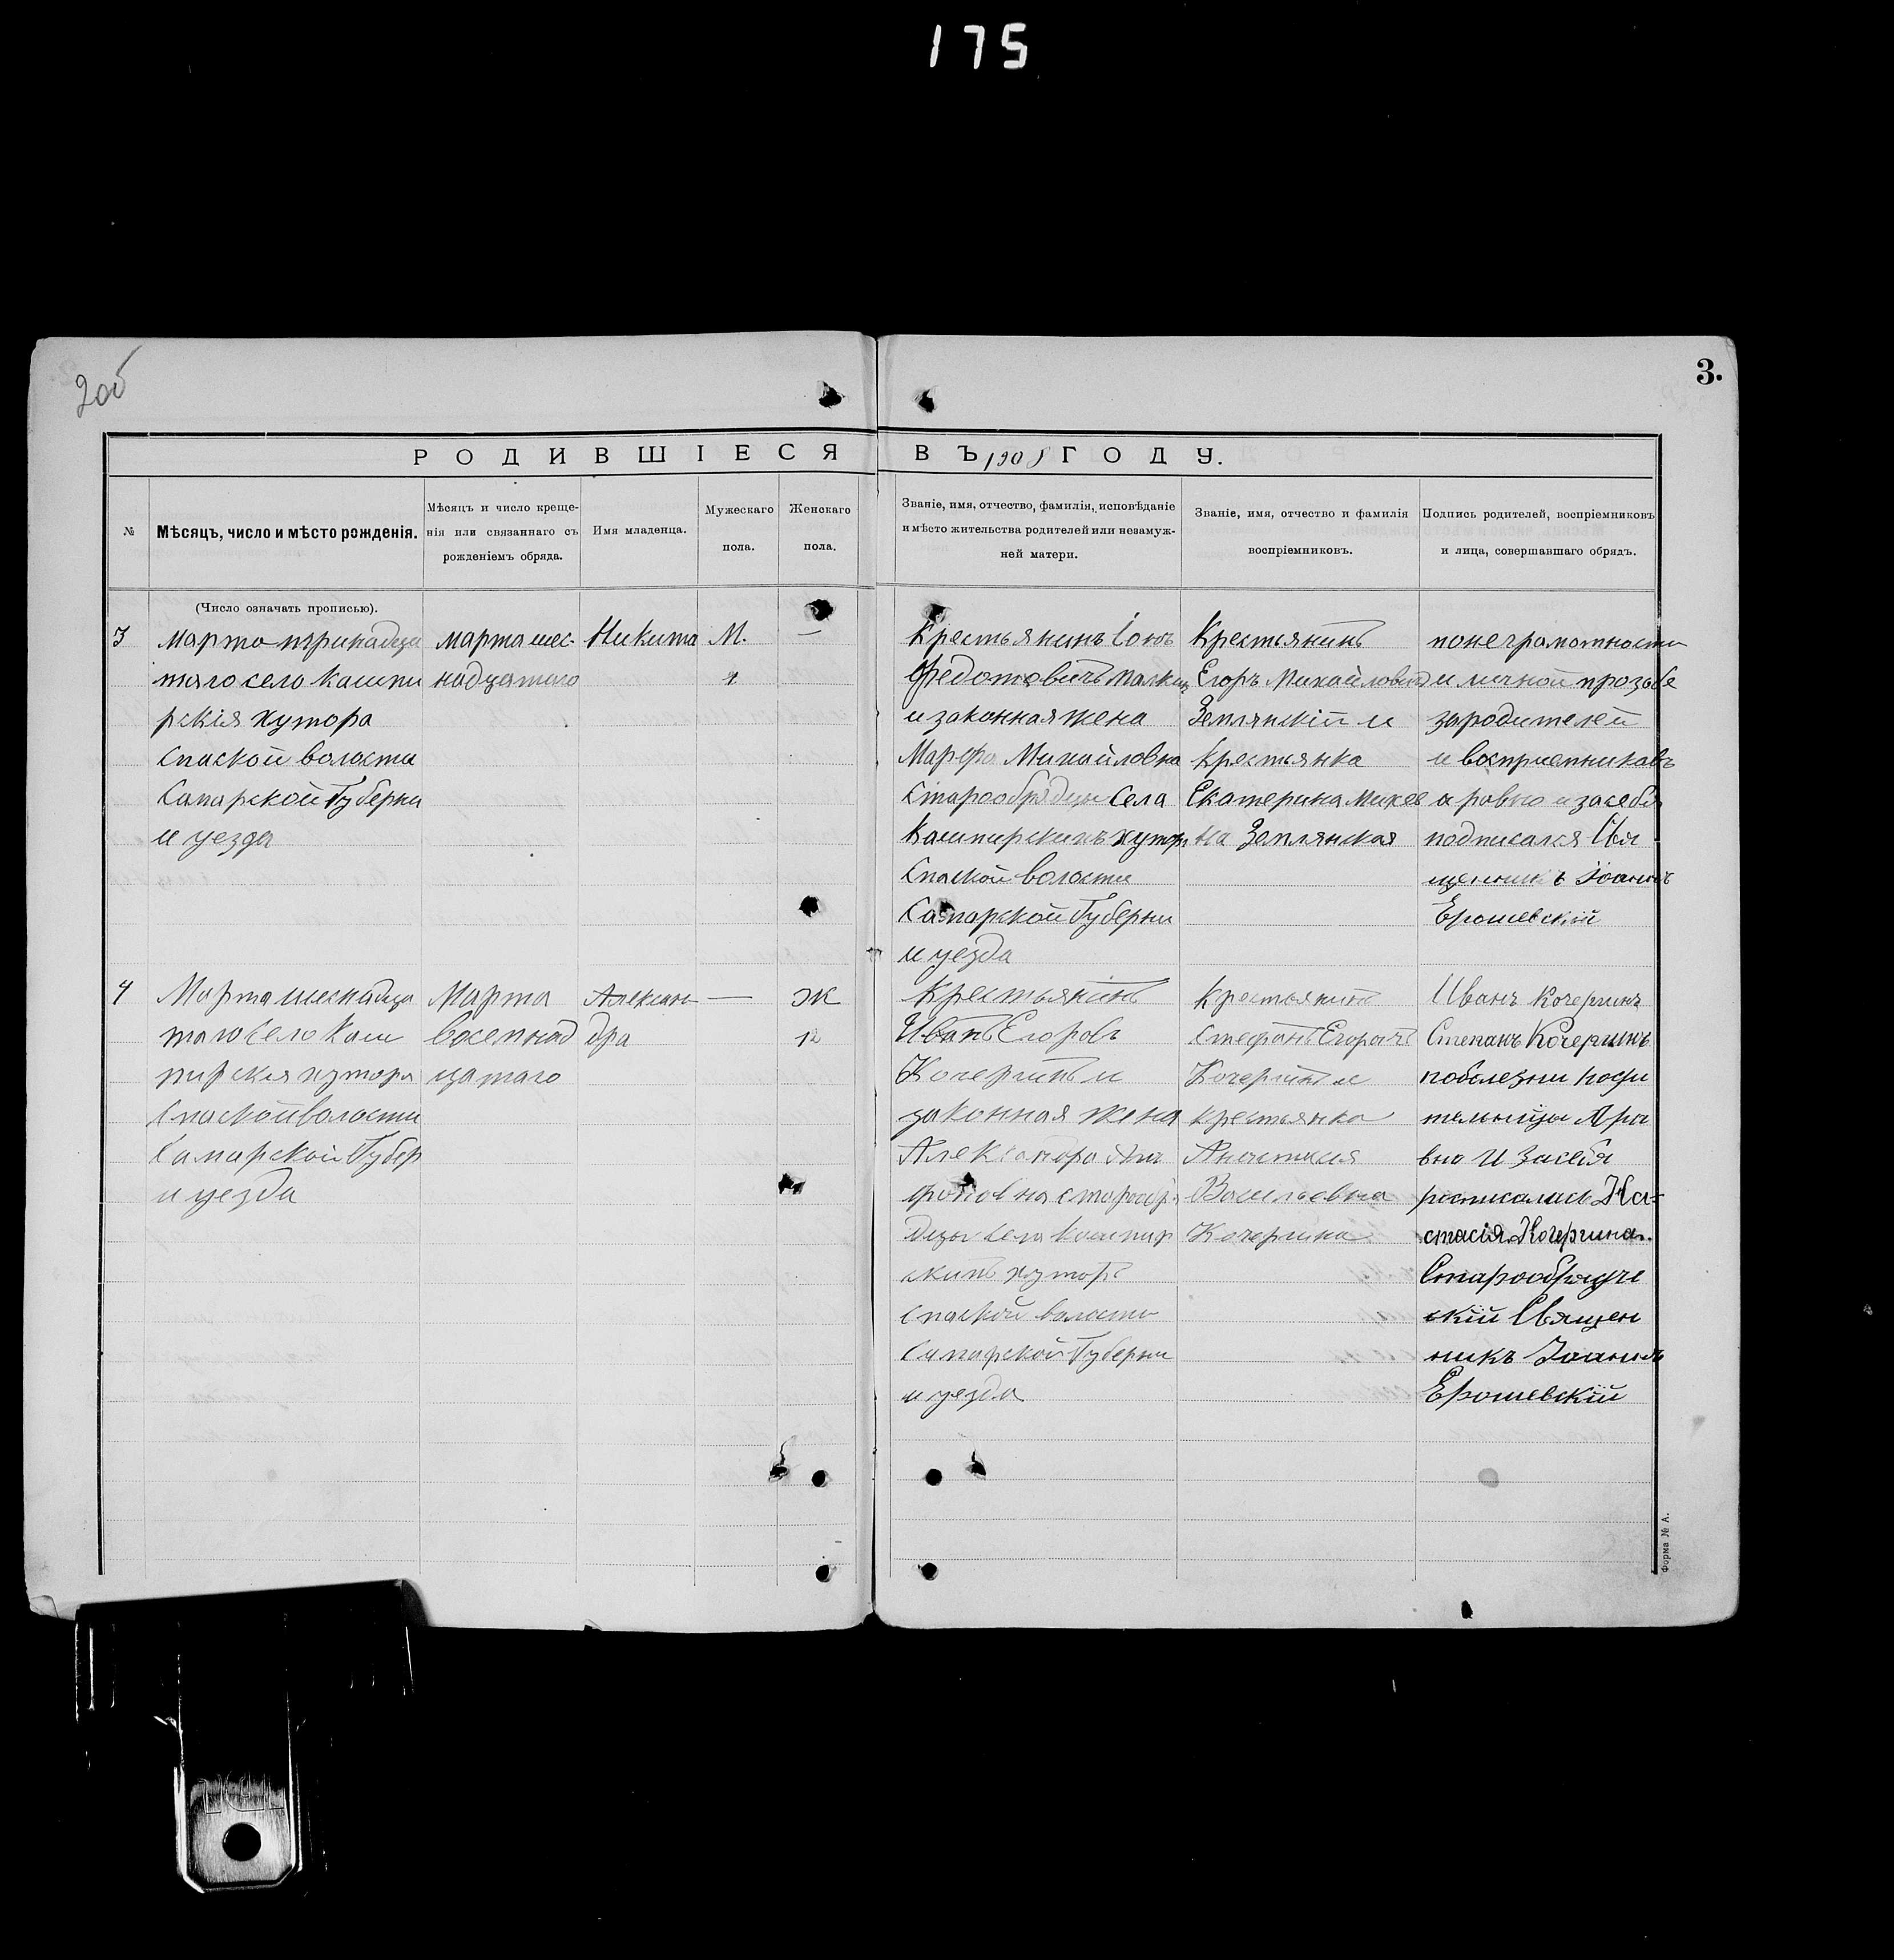 175
2об
3.
РОДИВШІЕСЯ ВЪ 1908 ГОДУ.
№
Мѣсяцъ, число и мѣсто рожденія.
Мѣсяцъ и число креще-
нія или связаннаго съ
рожденіемъ обряда.
Имя младенца.
Мужескаго
пола.
Женскаго
пола.
Званіе, имя, отчество, фамилія, исповѣданіе
и мѣсто жительства родителей или незамуж-
ней матери.
Званіе, имя, отчество и фамилія
воспріемниковъ.
Подпись родителей, воспріемниковъ
и лица, совершавшаго обрядъ.
(Число означать прописью).
3
марта тринадца
таго село Кашпи
рскія хутора
спаской волости
Самарской Губерни
и уезда
марта шес-
надцатаго
Никита
М.
—
Крестьянинъ
Федотовичъ
и законная жена
Марфа Михайловна
старообрядцы села
Кашпирскихъ хутор
Спаской волости
Самарской Губерни
и уезда
Крестьянинъ
Егоръ Михайловичъ
Землянскій и
крестьянка
Екатерина Михее
на Землянская
понеграмотности
и личной прозьбе
зародителей
и восприемниковъ
а равно и засебя
подписался Свя
щенникъ Іоаннъ
Ерошевскій
4
Марта шеснадца
таго село Каш
пирския хутора
спаской волости
Самарской Губер
и уезда
Марта
восемнад
цатаго
Алексан
дра
—
Ж
12
Крестьянинъ
Иванъ Егоровъ
Кочергинъ и
законная жена
Александра Ага
фоновна старообря
дцы села кашпир
скихъ хуторъ
спаской волости
Самарской Губерни
и уезда
крестьянинъ
Стефанъ Егоровъ
Кочергинъ и
крестьянка
Анастасия
Васильевна
Кочергина
Иванъ Кочергинъ
Степанъ Кочергинъ
поболезни роди
тельницы Ара
вно И засебя
росписалась На-
стасія Кочергина.
Старообрядче
скій Священ
никъ Іоаннъ
Ерошевскій
Форма № А.